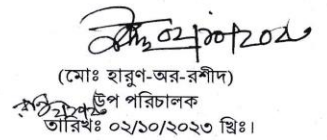 ০২/১০/২০২৩
(মোঃ হারুণ-অর-রশীদ)
উপ পরিচালক
তারিখঃ ০২/১০/২০২৩ খ্রিঃ।